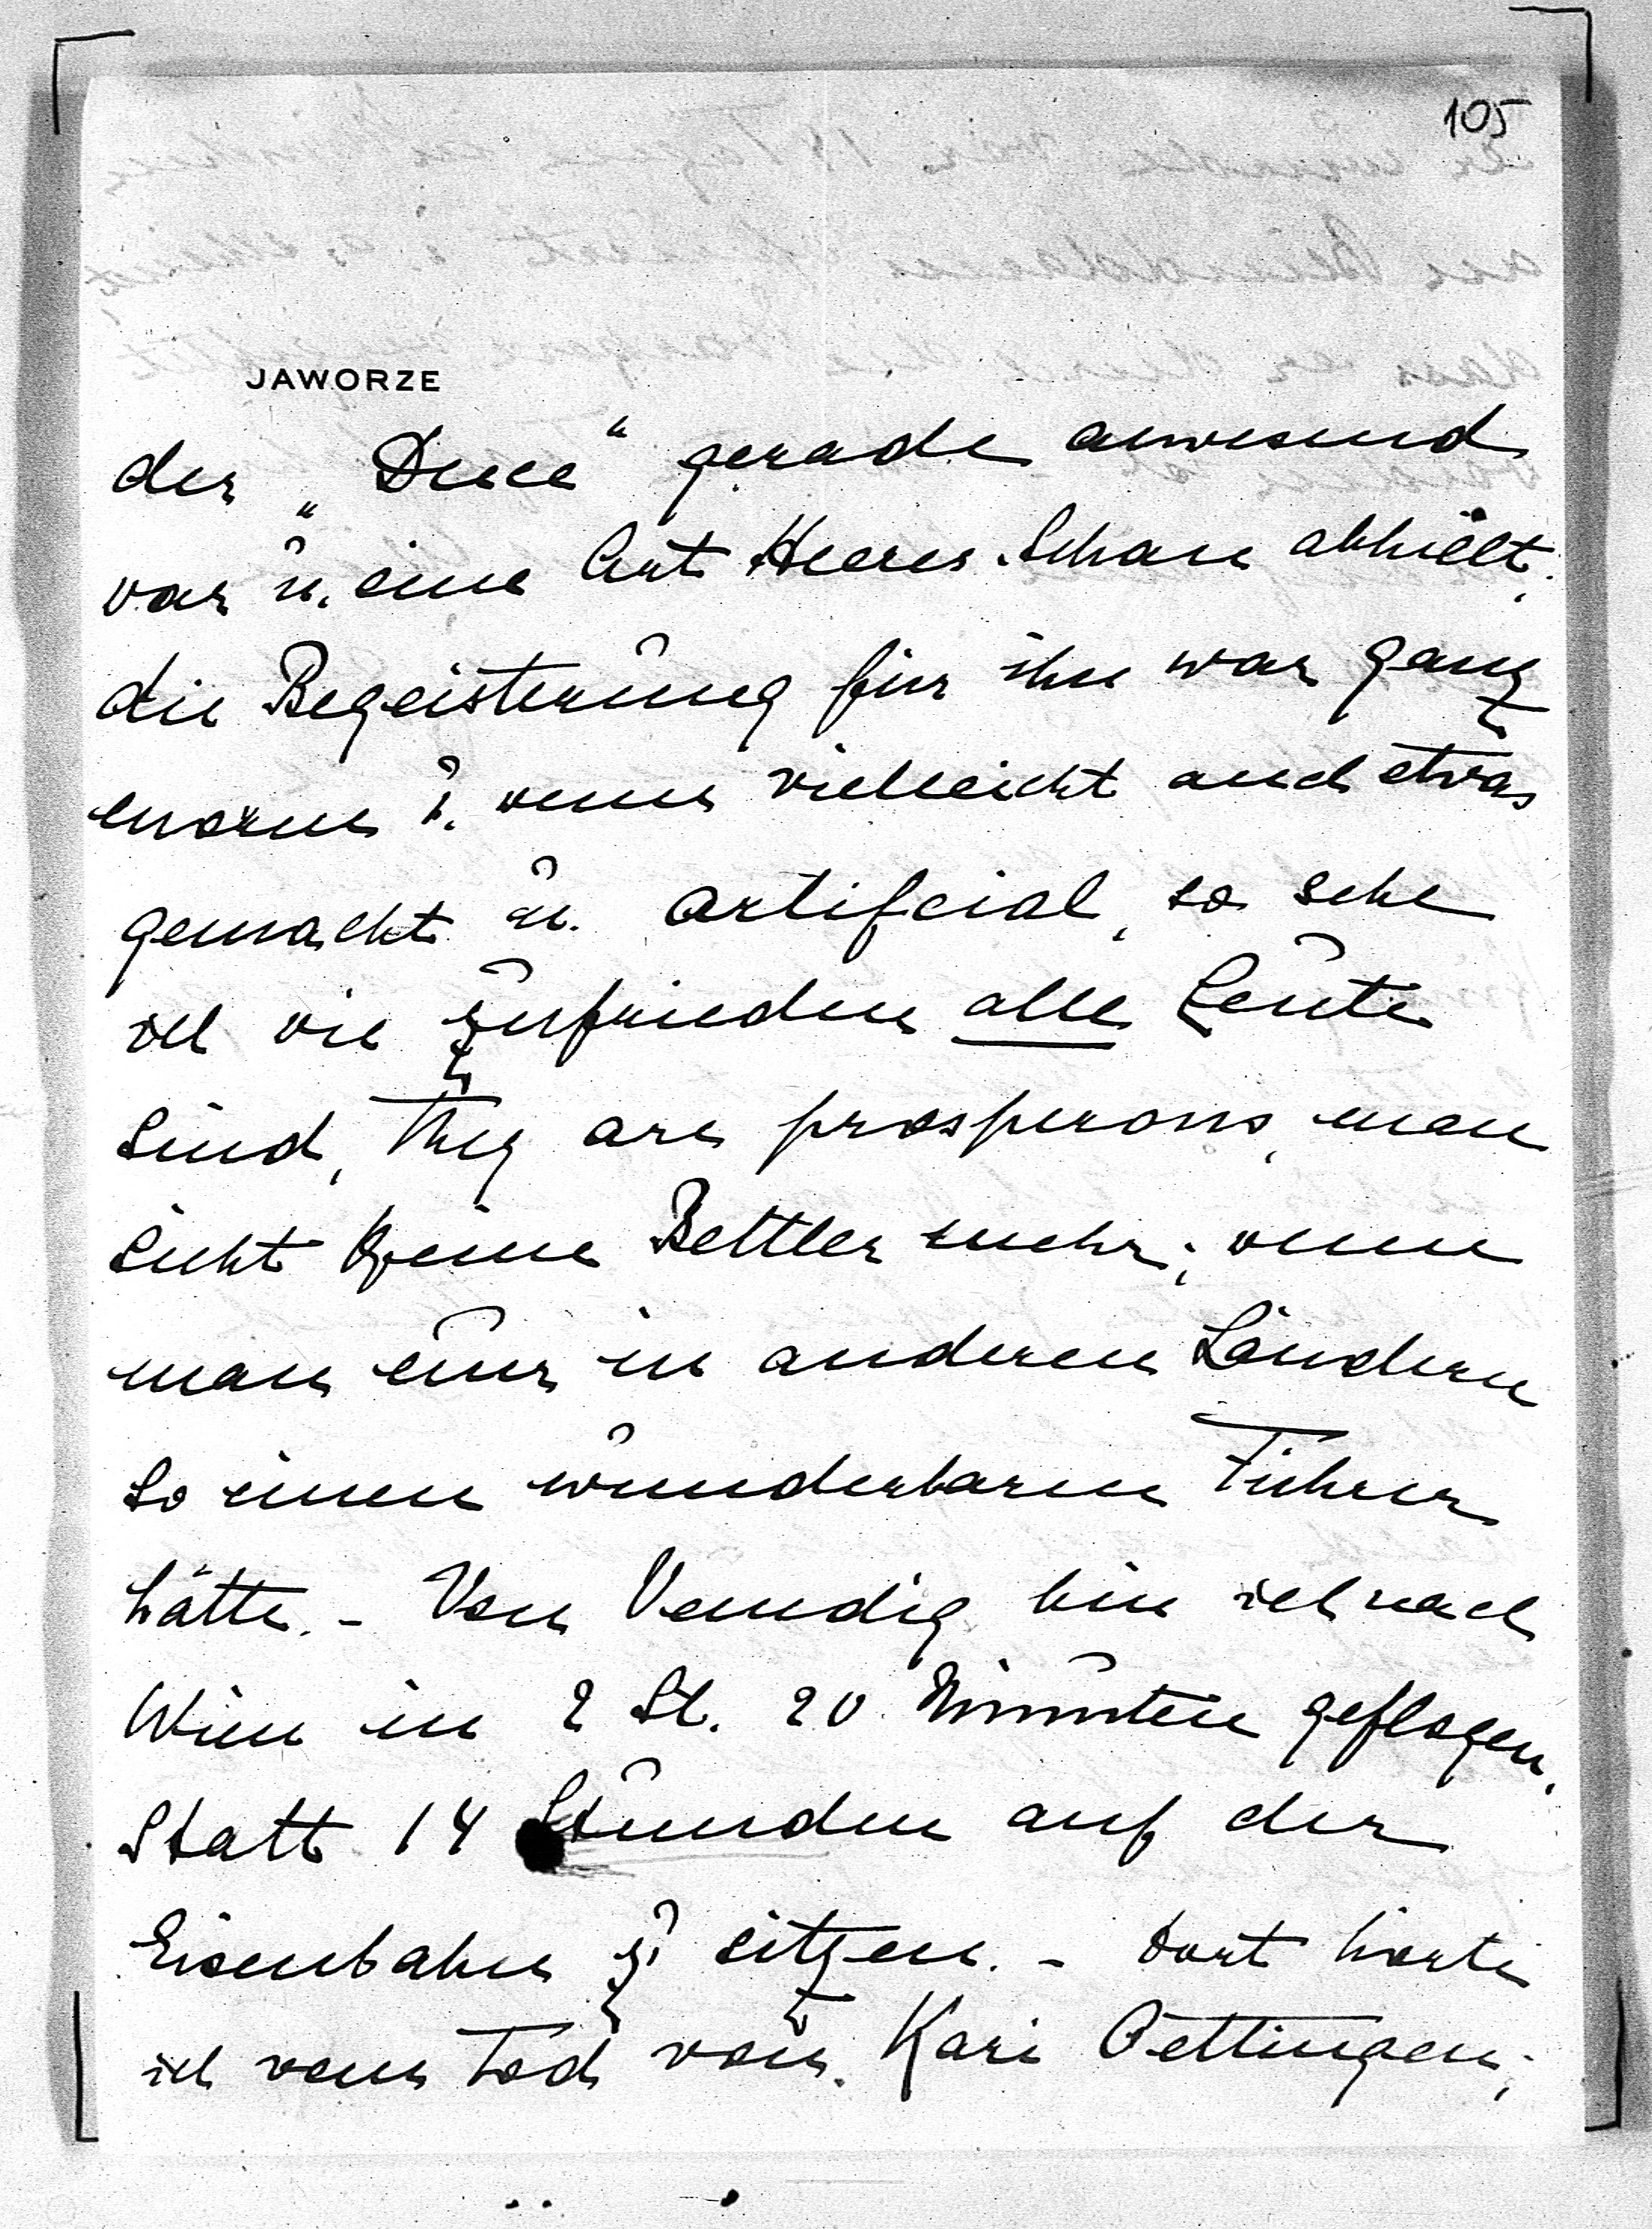 105
JAWORZE
der „Duce“ gerade anwesend
war u. eine Art Heeres-Schau abhielt.
die Begeisterung für ihn war ganz
enorm u. wenn vielleicht auch etwas
gemacht u. artifcial, so sehe
ich wie zufrieden alle Leute
sind, they are prosperous, man
sieht keine Bettler mehr; wenn
man nur in anderen Ländern
so einen wunderbaren Führer
hätte. - Von Venedig bin ich nach
Wien in 2 St. 20 Minuten geflogen,
statt 14 Stunden auf der
Eisenbahn zu sitzen. - Dort hörte
ich vom Tod von Kari Oettingen;